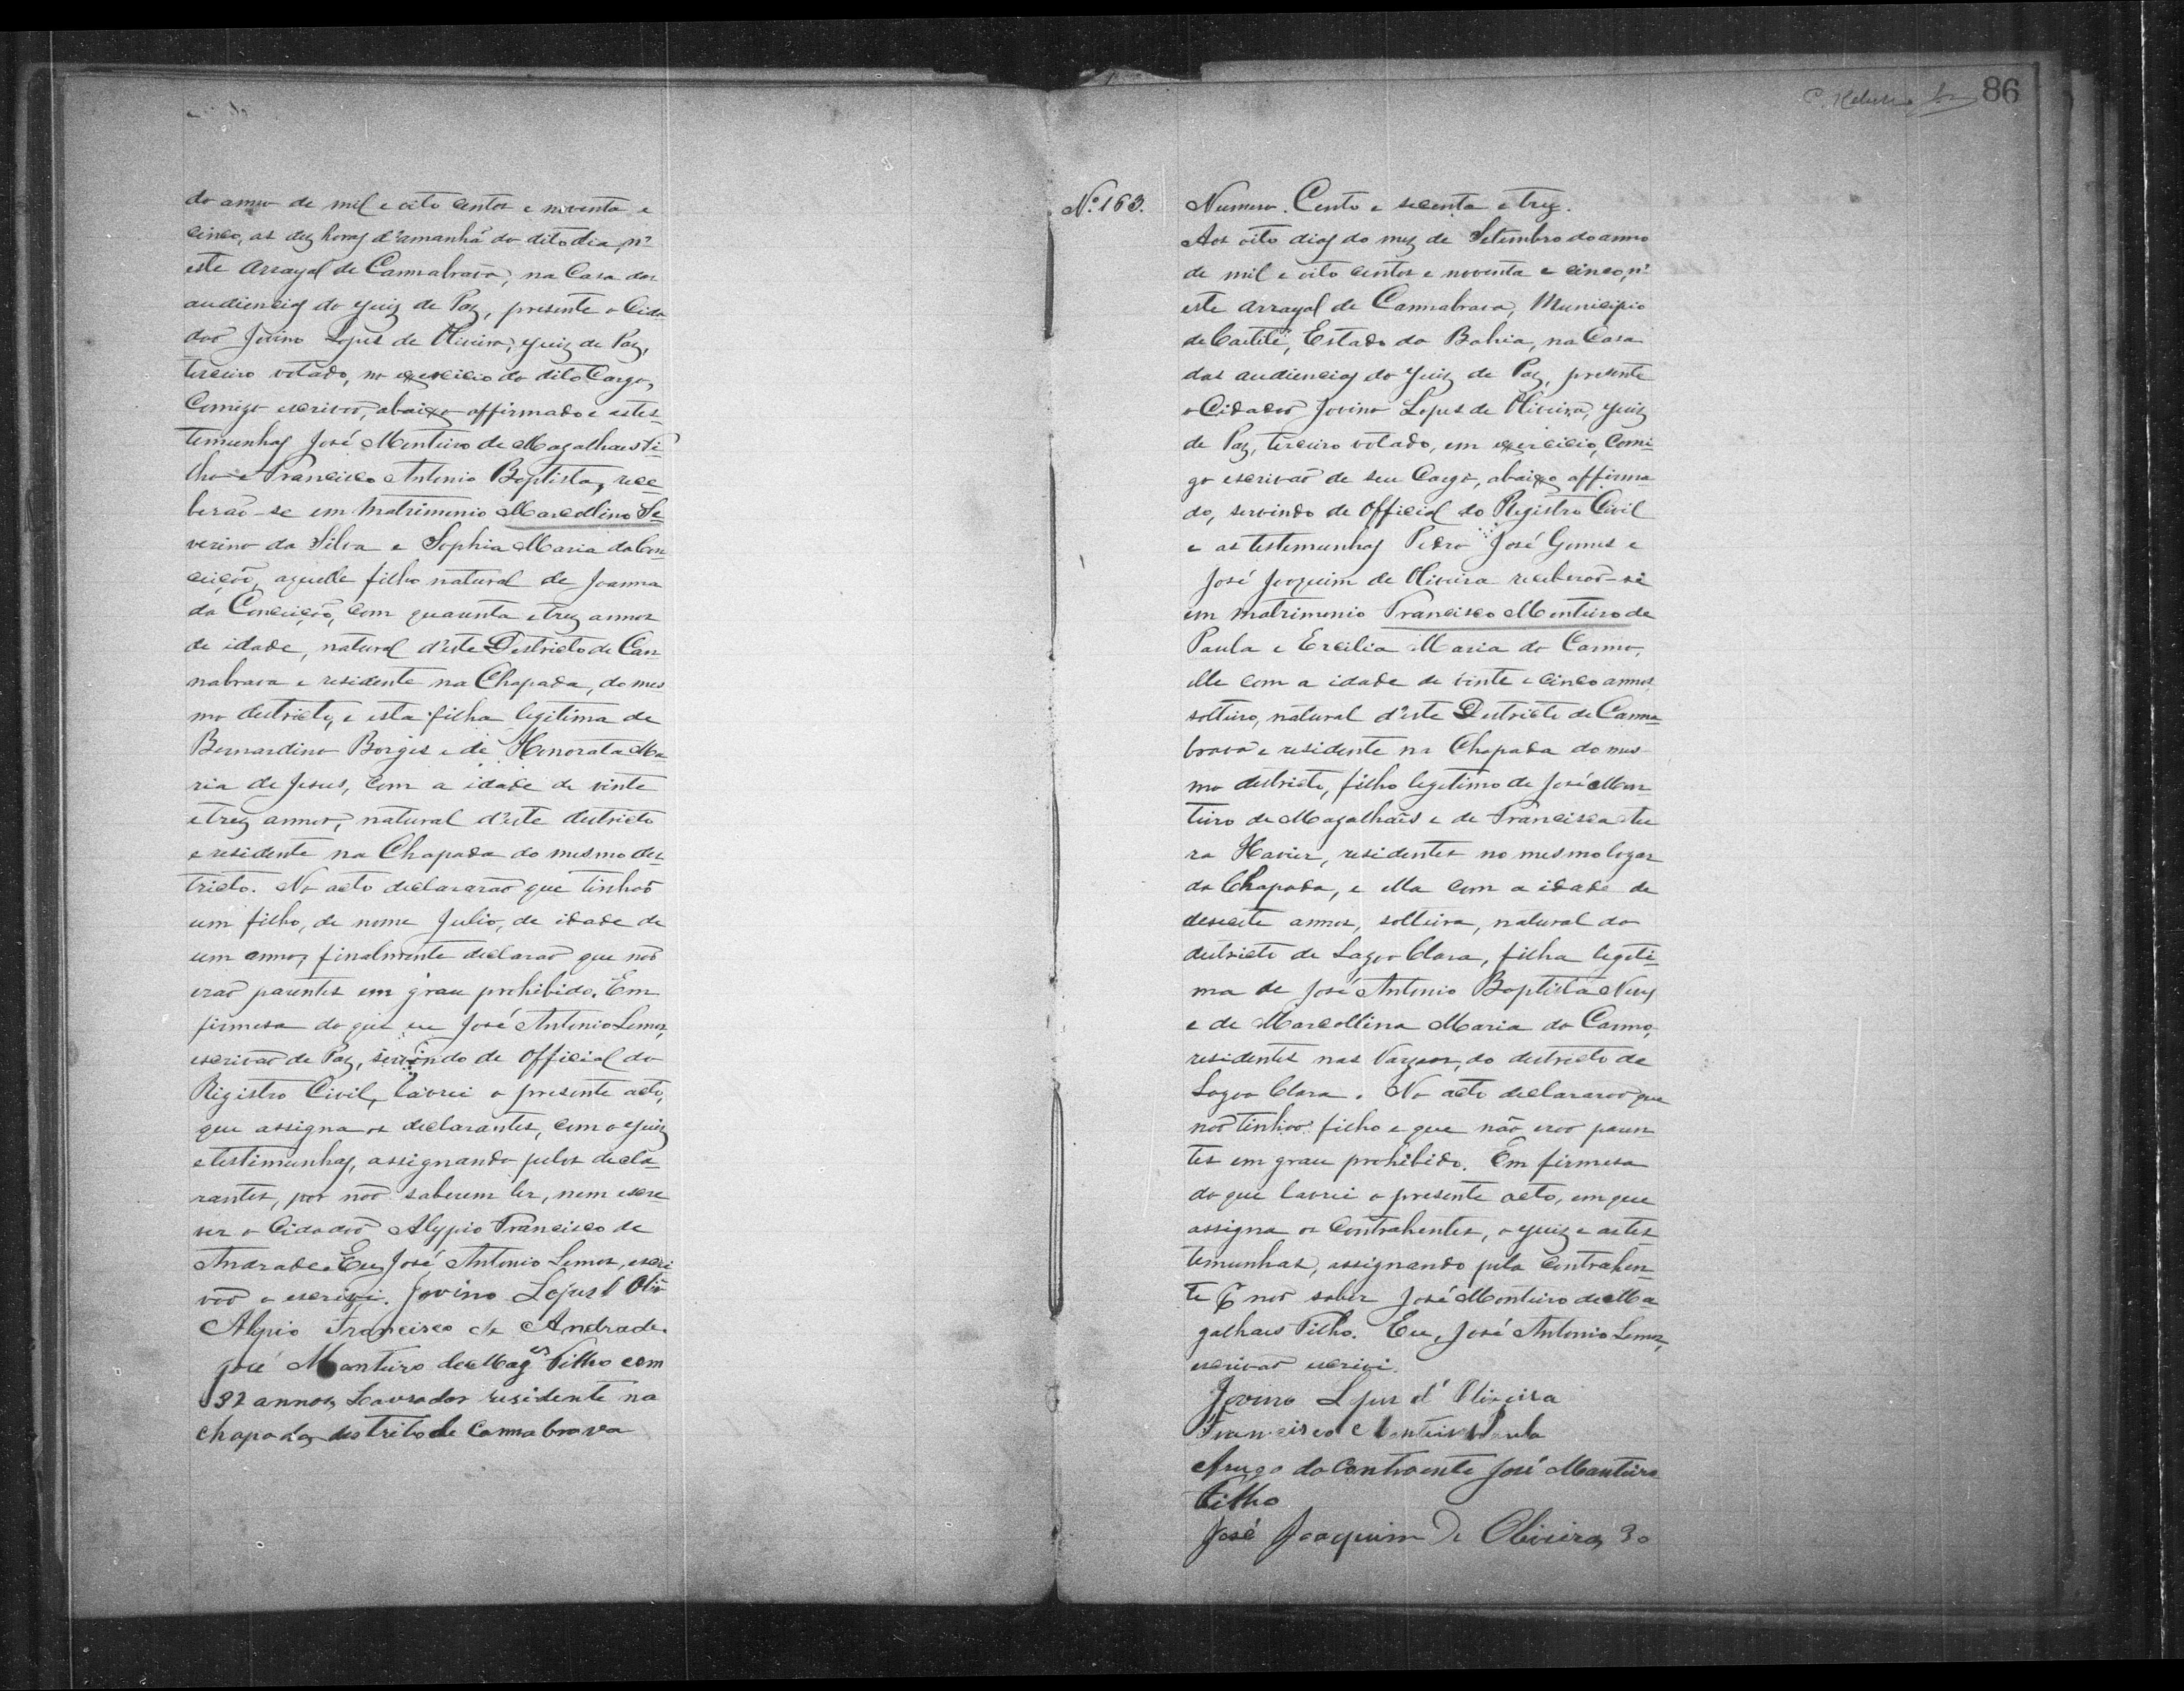 do anno de mil e oito centos e noventa e
cinco, as dez horas d'amanhã do dito dia, n'
este Arrayal de Cannabrava, na Casa das
audiencias do Juiz de Paz, presente o Cida
dão Jovino Lopes de Oliveira, Juiz de Paz,
terceiro votado, no exercicio do dito Cargo,
Comigo escrivão, abaixo affirmado e as tes
temunhas José Monteiro de Magalhaes Fi-
lho e Francisco Antonio Baptista, rece-
berão-se em matrimonio Marcollino Se
verino da Silva e Sophia Maria da Con
ceição, aquelle filho natural de Joanna
da Conceição, com quarenta e trez annos
de idade, natural d'este Destricto de Can
nabrava e residente na Chapada, do mes
mo destricto, e esta filha legitima de
Bernardino Borges e de Honorata Ma
ria de Jesus, com a idade de vinte
e trez annos, natural d'este destricto
e residente na Chapada do mesmo des
tricto. No acto declararão que tinhão
um filho, de nome Julio, de idade de
um anno, finalmente declarão que não
erão parentes em grau prohibido. Em
firmesa do que eu José Antonio Lemos,
escrivão de Paz, servindo de Official do
Registro Civil, lavrei o presente acto,
que assigna os declarantes, com o Juiz
e testimunhas, assignando pelos decla-
rantes, por não saberem ler, nem escre
ver o Cidadão Alypio Francisco de
Andrade. Eu, José Antonio Lemos, escri
vão o escrivi. Jovino Lopes d' Olivª
Alypio Francisco de Andrade
José Monteiro de Mag.es Filho com
32 annos, Lavrador residente na
Chapada, destrito de Cannabrava
C. 86
Nº 163. Numero. Cento e secenta e trez.
Aos oito dias do mez de Setembro do anno
de mil e oito centos e noventa e cinco, n'
este Arrayal de Cannabrava, Municipio
de Caetité, Estado da Bahia, na Casa
das audiencias do Juiz de Paz, presente
o Cidadão Jovino Lopes de Oliveira, Juiz
de Paz, terceiro votado, em exercicio, Comi-
go escrivão de seu Cargo, abaixo affirma
do, servindo de Official do Registro Civil
e as testemunhas Pedro José Gomes e
José Joaquim de Oliveira receberão-se
em matrimonio Francisco Monteiro de
Paula e Ercilia Maria do Carmo,
elle com a idade de vinte e cinco annos
solteiro, natural d'este Destricto de Canna
brava e residente na Chapada do mes-
mo destricto, filho legetimo de José Mon-
teiro de Magalhães e de Francisca
ra Xavier, residentes no mesmo logar
da Chapada, e ella com a idade de
desecete annos, solteira, natural do
destricto de Lagoa Clara, filha legeti-
ma de José Antonio Baptista Neves
e de Marcollina Maria do Carmo,
residentes nas Vargens, do destricto de
Lagoa Clara. No acto declararão que
não tinhão filho e que não erão paren
tes em grau prohibido. Em firmesa
do que lavrei o presente acto, em que
assigna os Contrahentes, o Juiz e as tes
temunhas, assignando pela Contrahen-
te não saber José Monteiro de Ma
galhaes Filho. Eu, José Antonio Lemos,
escrivão escrivi.
Jovino Lopes d' Oliveira
Francisco Monteiro Paula
Arugo da Contraente José Monteiro
Filho
José Joaquim de Oliveira, 30